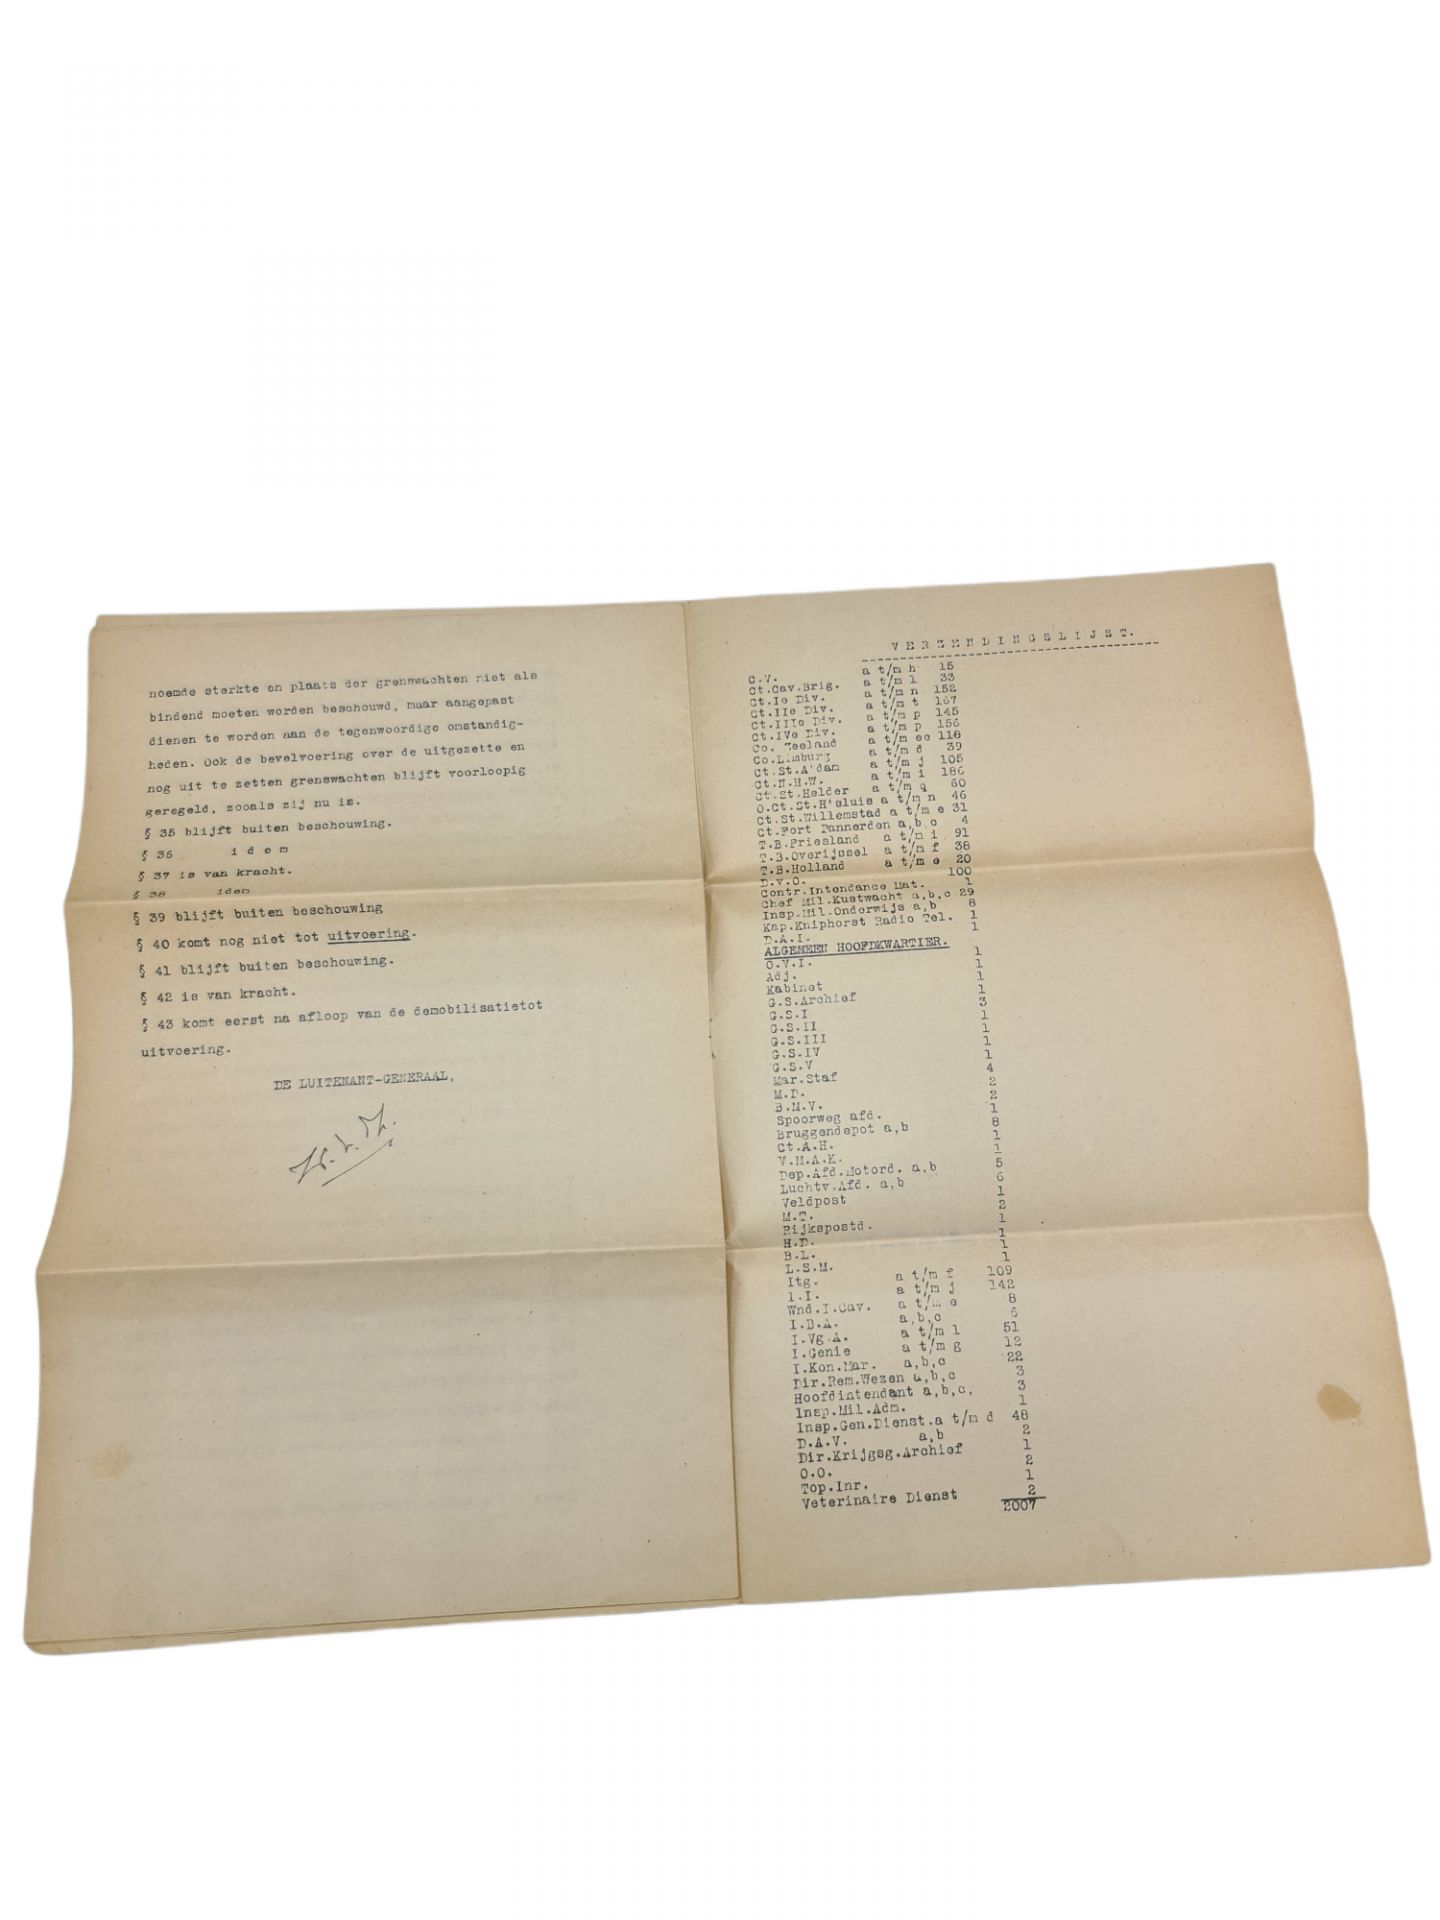 noemde sterkte en plaats der grenswachten niet als
bindend moeten worden beschouwd, maar aangepast
dienen te worden aan de tegenwoordige omstandig-
heden. Ook de bevelvoering over de uitgezette en
nog uit te zetten grenswachten blijft voorloopig
geregeld, zooals zij nu is.
§ 35 blijft buiten beschouwing.
§ 36 i d e m
§ 37 is van kracht.
§ 38 idem
§ 39 blijft buiten beschouwing
§ 40 komt nog niet tot uitvoering.
§ 41 blijft buiten beschouwing.
§ 42 is van kracht.
§ 43 komt eerst na afloop van de demobilisatietot
uitvoering.
DE LUITENANT-GENERAAL,
V E R Z E N D I N G S L I J S T.
C.V. a t/m h 15
Ct.Cav.Brig. a t/m l 33
Ct.Ie Div. a t/m n 152
Ct.IIe Div. a t/m t 167
Ct.IIIe Div. a t/m p 145
Ct.IVe Div. a t/m p 156
Co. Zeeland a t/m ee 118
Co.Limburg a t/m d 39
Ct.St.A'dam a t/m j 105
Ct.N.H.W. a t/m i 186
Ct.St.Helder a t/m q 60
O.Ct.St.H'sluis a t/m n 46
Ct.St.Willemstad a t/m e 31
Ct.Fort Pannerden a,b,c 4
T.B.Friesland a t/m i 91
T.B.Overijssel a t/m f 38
T.B.Holland a t/m e 20
D.v.O. 100
Contr.Intendance Mat. 1
Chef Mil.Kustwacht a,b,c 29
Insp.Mil.Onderwijs a,b 8
Kap.Kniphorst Radio Tel. 1
D.A.I. 1
ALGEMEEN HOOFDKWARTIER.
O.V.I. 1
Adj. 1
Kabinet 1
G.S.Archief 1
G.S.I 3
G.S.II 1
G.S.III 1
G.S.IV 1
G.S.V 1
Mar.Staf 4
M.D. 2
B.M.V. 2
Spoorweg afd. 1
Bruggendepot a,b 8
Ct.A.H. 1
V.M.A.K. 1
Dep.Afd.Motord. a,b 5
Luchtv.Afd. a,b 6
Veldpost 1
M.T. 2
Rijkspostd. 1
H.D. 1
B.L. 1
L.S.M. 1
Itg. a t/m f 109
I.I. a t/m j 142
Wnd.I.Cav. a t/m e 8
I.B.A. a,b,c 6
I.Vg.A. a t/m l 51
I.Genie a t/m g 12
I.Kon.Mar. a,b,c 22
Dir.Rem.Wezen a,b,c 3
Hoofdintendant a,b,c, 3
Insp.Mil.Adm. 1
Insp.Gen.Dienst.a t/m d 48
D.A.V. a,b 2
Dir.Krijgsg.Archief 1
O.O. 2
Top.Inr. 1
Veterinaire Dienst 2
2007